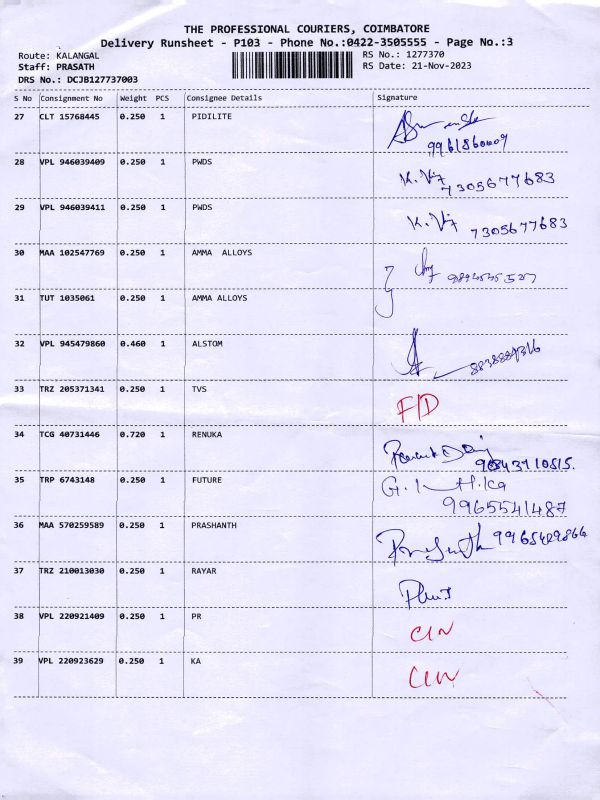 THE PROFESSIONAL COURIERS, COIMBATORE
Delivery Runsheet - P103 - Phone No.:0422-3505555 - Page No.:3
Route: KALANGAL RS No.: 1277370
Staff: PRASATH RS Date: 21-Nov-2023
DRS No.: DCJB127737003
S No Consignment No Weight PCS Consignee Details Signature
27 CLT 15768445 0.250 1 PIDILITE
28 VPL 946039409 0.250 1 PWDS
7305677683
29 VPL 946039411 0.250 1 PWDS
7305677683
30 MAA 102547769 0.250 1 AMMA ALLOYS
31 TUT 1035061 0.250 1 AMMA ALLOYS
32 VPL 945479860 0.460 1 ALSTOM
33 TRZ 205371341 0.250 1 TVS F/D
34 TCG 40731446 0.720 1 RENUKA
35 TRP 6743148 0.250 1 FUTURE
9965541487
36 MAA 570259589 0.250 1 PRASHANTH
37 TRZ 210013030 0.250 1 RAYAR
38 VPL 220921409 0.250 1 PR CIN
39 VPL 220923629 0.250 1 KA